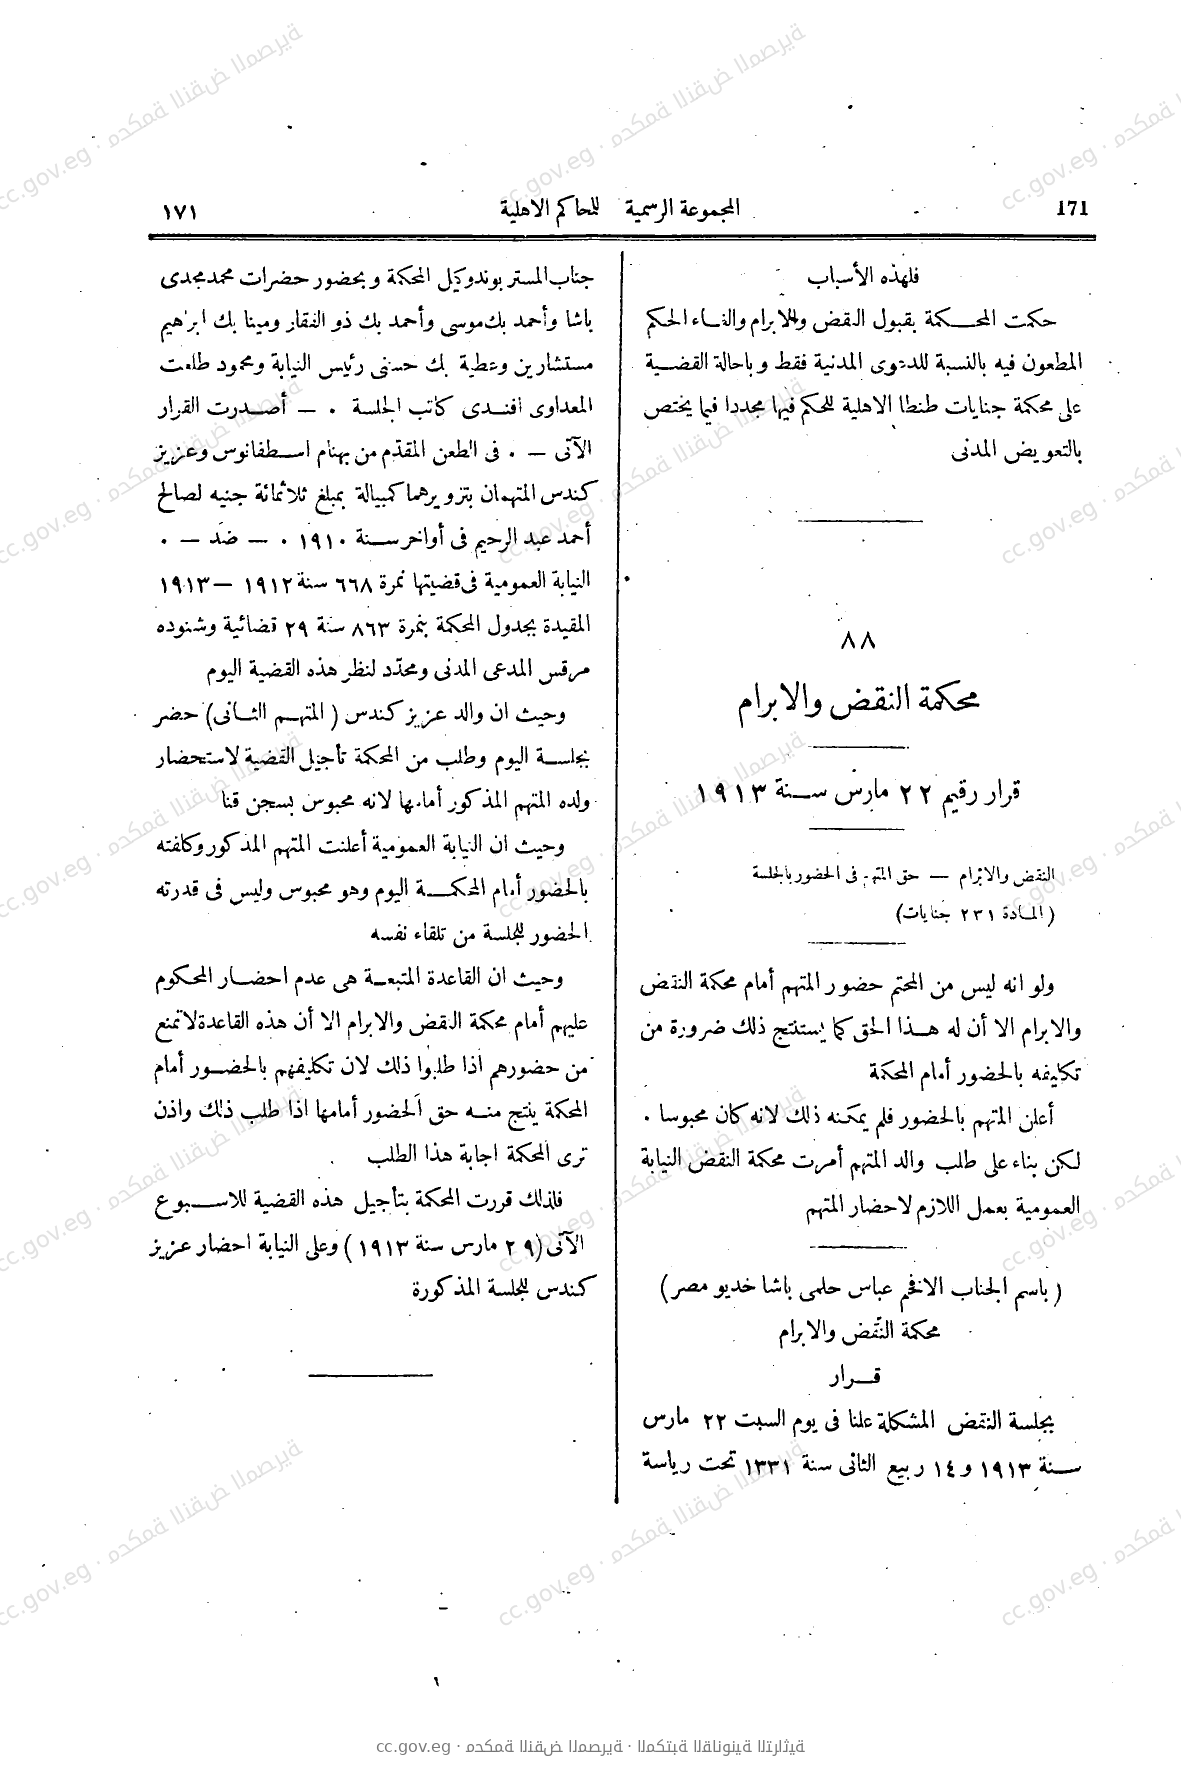 171
المجموعة الرسمية للمحاكم الاهلية
١٧١
فلهذه الأسباب
حكمت المحكمة بقبول النقض والابرام والغاء الحكم
المطعون فيه بالنسبة للدعوى المدنية فقط وباحالة القضية
على محكمة جنايات طنطا الاهلية للحكم فيها مجددا فيما يختص
بالتعويض المدنى
٨٨
محكمة النقض والابرام
قرار رقيم ٢٢ مارس سنة ١٩١٣
النقض والابرام — حق المتهم فى الحضور بالجلسة
(المادة ٢٣١ جنايات)
ولو انه ليس من المحتم حضور المتهم أمام محكمة النقض
والابرام الا أن له هذا الحق كما يستنتج ذلك ضرورة من
تكليفه بالحضور أمام المحكمة
أعلن المتهم بالحضور فلم يمكنه ذلك لانه كان محبوسا .
لكن بناء على طلب والد المتهم أمرت محكمة النقض النيابة
العمومية بعمل اللازم لاحضار المتهم
(باسم الجناب الافخم عباس حلمى باشا خديو مصر)
محكمة النقض والابرام
قرار
بجلسة النقض المشكلة علنا فى يوم السبت ٢٢ مارس
سنة ١٩١٣ و ١٤ ربيع الثانى سنة ١٣٣١ تحت رياسة
جناب المستر بوند وكيل المحكمة وبحضور حضرات محمد مجدى
باشا وأحمد بك موسى وأحمد بك ذو الفقار ومينا بك ابراهيم
مستشارين وعطية بك حسنى رئيس النيابة ومحمود طلعت
المعداوى افندى كاتب الجلسة . — أصدرت القرار
الآتى — . فى الطعن المقدّم من بهنام اسطفانوس وعزيز
كندس المتهمان بتزويرهما كمبيالة بمبلغ ثلاثمائة جنيه لصالح
أحمد عبد الرحيم فى أواخر سنة ١٩١٠ . — ضدّ — .
النيابة العمومية فى قضيتها نمرة ٦٦٨ سنة ١٩١٢ — ١٩١٣
المقيدة بجدول المحكمة بنمرة ٨٦٣ سنة ٢٩ قضائية وشنوده
مرقس المدعى المدنى ومحدّد لنظر هذه القضية اليوم
وحيث ان والد عزيز كندس (المتهم الثانى) حضر
بجلسة اليوم وطلب من المحكمة تأجيل القضية لاستحضار
ولده المتهم المذكور أمامها لانه محبوس بسجن قنا
وحيث ان النيابة العمومية أعلنت المتهم المذكور وكلفته
بالحضور أمام المحكمة اليوم وهو محبوس وليس فى قدرته
الحضور للجلسة من تلقاء نفسه
وحيث ان القاعدة المتبعة هى عدم احضار المحكوم
عليهم أمام محكمة النقض والابرام الا أن هذه القاعدة لا تمنع
من حضورهم اذا طلبوا ذلك لان تكليفهم بالحضور أمام
المحكمة ينتج منه حق الحضور أمامها اذا طلب ذلك واذن
ترى المحكمة اجابة هذا الطلب
فلذلك قررت المحكمة بتأجيل هذه القضية للاسبوع
الآتى (٢٩ مارس سنة ١٩١٣) وعلى النيابة احضار عزيز
كندس للجلسة المذكورة
cc.gov.eg · محكمة النقض المصرية · المكتبة القانونية التراثية